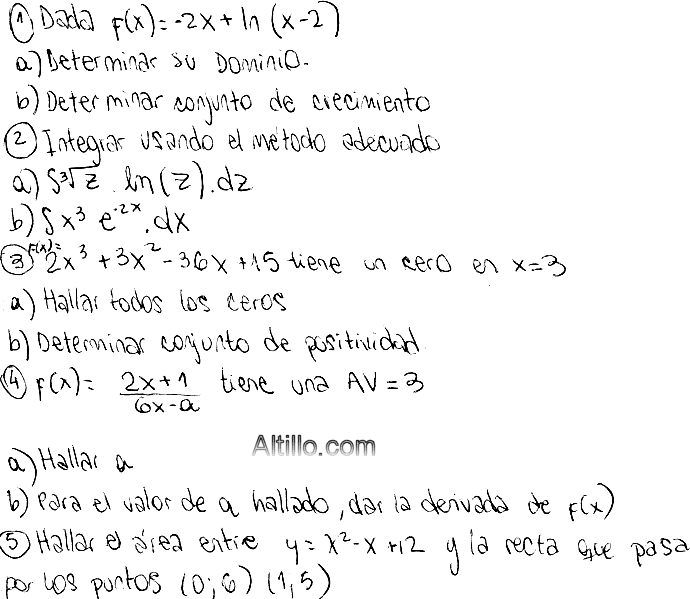 ① Dada f(x)=-2x+ln(x-2)
a) Determinar su Dominio.
b) Determinar conjunto de crecimiento
② Integrar usando el método adecuado
a) ∫∛z . ln(z).dz
b) ∫x³ e⁻²ˣ.dx
③ F(x)= 2x³+3x²-36x+15 tiene un cero en x=3
a) Hallar todos los ceros
b) Determinar conjunto de positividad
④ f(x)= (2x+1)/(6x-a) tiene una AV=3
Altillo.com
a) Hallar a
b) Para el valor de a hallado, dar la derivada de f(x)
⑤ Hallar el área entre y=x²-x+12 y la recta que pasa
por los puntos (0;6) (1,5)